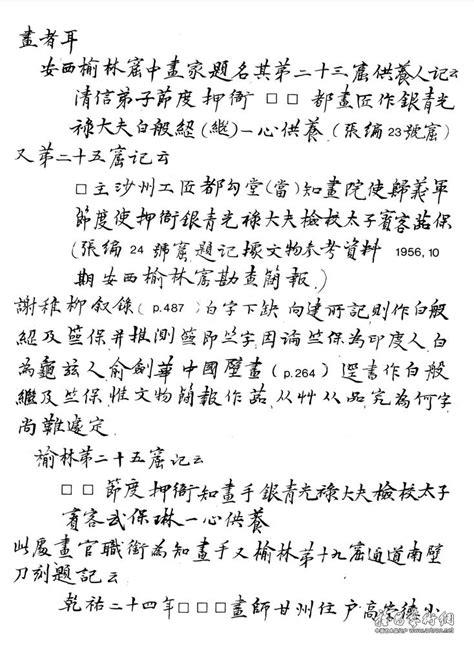 畫者耳
安西榆林窟中畫家題名其第二十三窟供養人記云
清信弟子節度押衙□□都畫匠作銀青光
祿大夫白般絰(繼)一心供養(張編23號窟)
又第二十五窟記云
□主沙州工匠都勾堂(當)知畫院使歸義軍
節度使押衙銀青光祿大夫檢校太子賓客保
(張編24號窟題記據文物參考資料1956,10
期安西榆林窟勘查簡報)
謝稚柳敘錄(p.487)白字下缺向建所記則作白般
絰及竺保并推測即竺字因論竺保為印度人白
為龜茲人俞劍華中國壁畫(p.264)逕書作白般
繼及竺保惟文物簡報作从艸从品究為何字
尚難遽定
榆林第二十五窟記云
□□節度押衙知畫手銀青光祿大夫檢校太子
賓客武保琳一心供養
此處畫官職銜為知畫手又榆林第十九窟通道南壁
刀刻題記云
乾祐二十四年□□□畫師甘州住户高崇德小